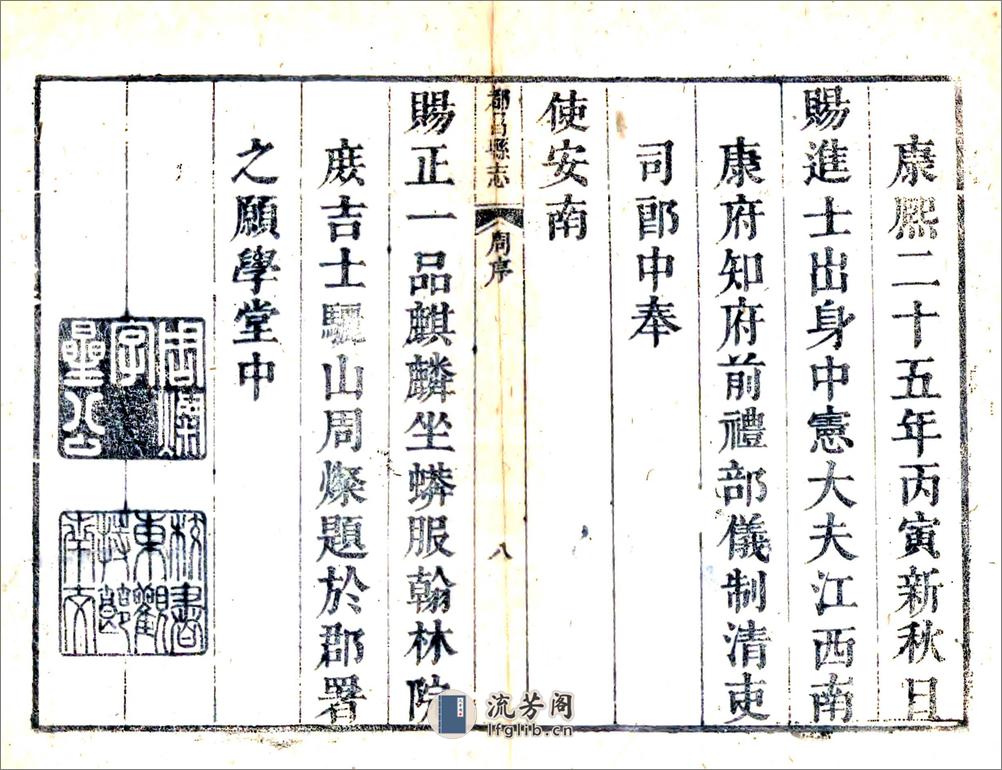 康熙二十五年丙寅新秋日
賜進士出身中憲大夫江西南
康府知府前禮部儀制清吏
司郎中奉
使安南
都昌縣志
周序
八
賜正一品麒麟坐蟒服翰林院
庻吉士驪山周燦題於郡署
之願學堂中
周燦
字
星公
校書
東觀
持節
南交
流芳阁
lfglib.cn